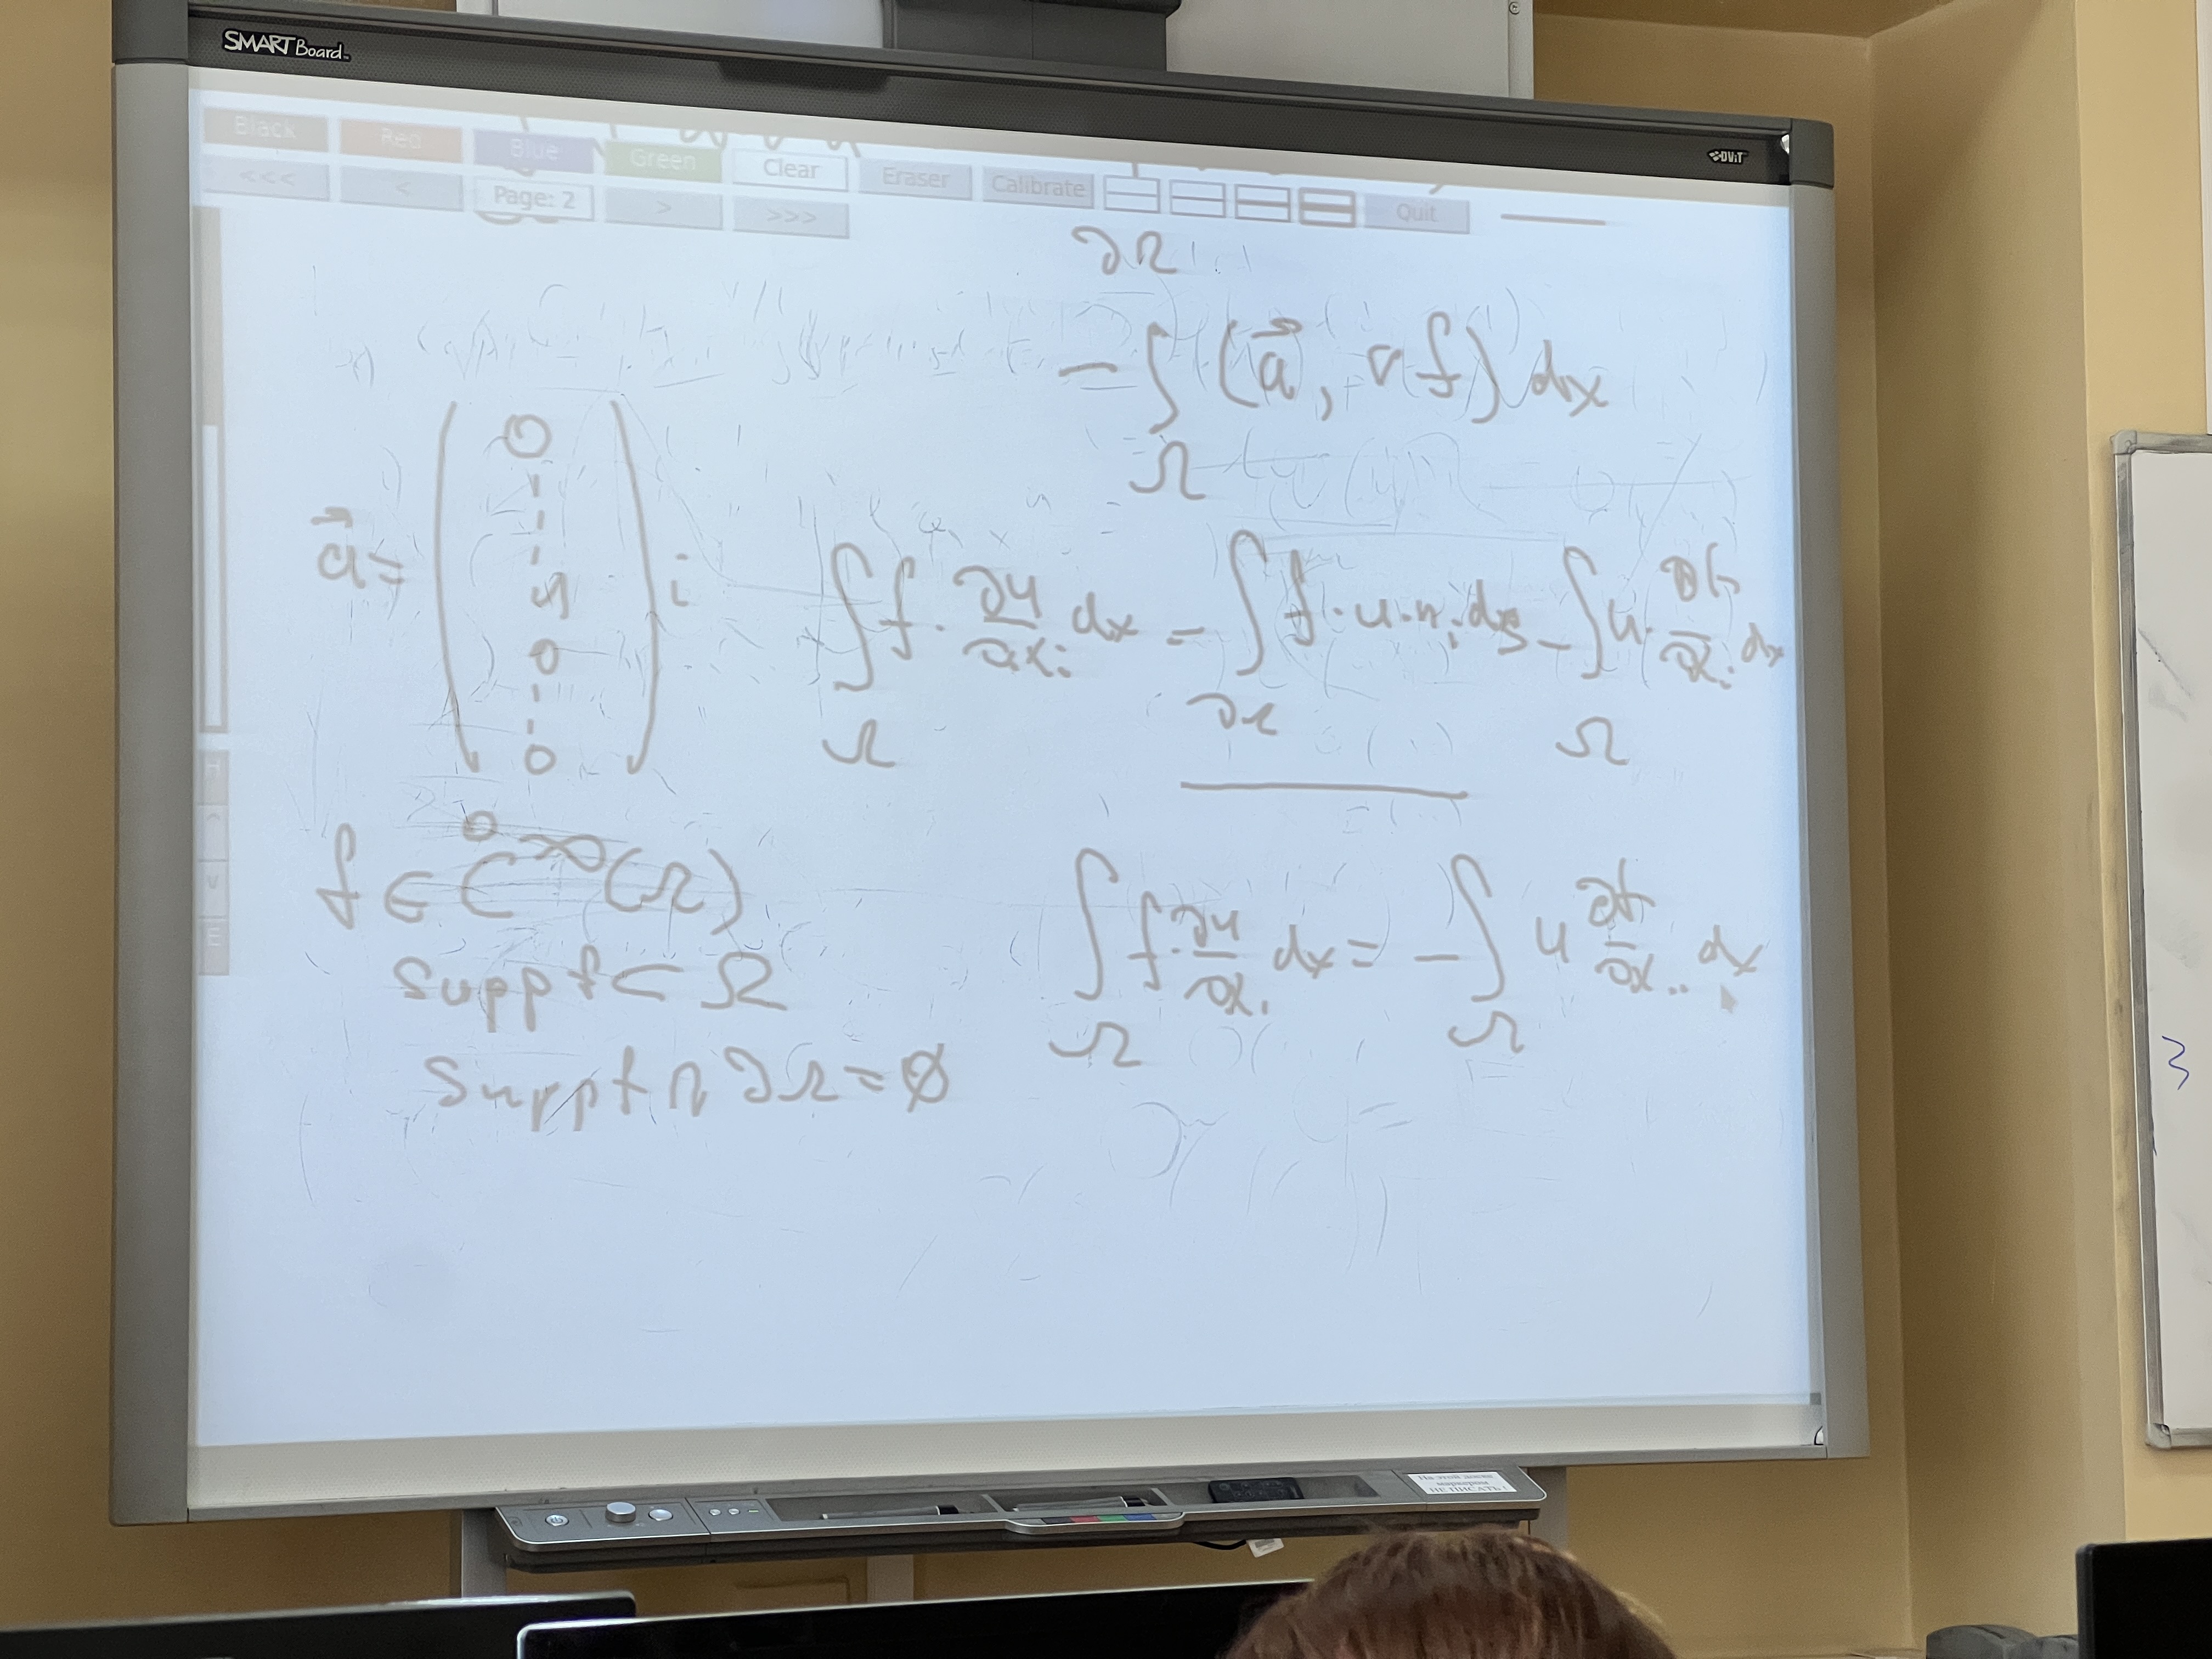 SMART Board
DViT
Black Red Blue Green Clear Eraser Calibrate Quit
<<< < Page: 2 > >>>
∂Ω
− ∫_Ω (a⃗, ∇f) dx
a⃗ = ( 0 ¦ u 0 ¦ 0 ) i
∫_Ω f · ∂u/∂xᵢ dx = ∫_∂Ω f · u · nᵢ ds − ∫_Ω u · ∂f/∂xᵢ dx
f ∈ C̊^∞(Ω)
supp f ⊂ Ω
supp f ∩ ∂Ω = ∅
∫_Ω f · ∂u/∂xᵢ dx = − ∫_Ω u ∂f/∂xᵢ dx
На этой доске
маркером
НЕ ПИСАТЬ!